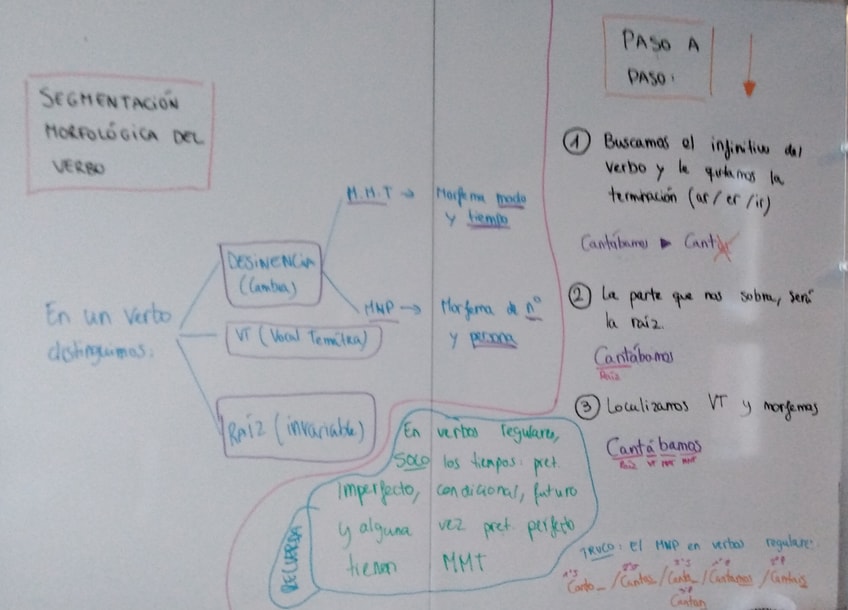 SEGMENTACIÓN
MORFOLÓGICA DEL
VERBO
En un verbo
distinguimos:
DESINENCIA
(Cambia)
M.M.T → Morfema modo
y tiempo
MNP → Morfema de nº
y persona
VT (Vocal Temática)
RAÍZ (invariable)
RECUERDA
En verbos regulares,
SOLO los tiempos: pret.
imperfecto, condicional, futuro
y alguna vez pret. perfecto
tienen MMT
PASO A
PASO:
1 Buscamos el infinitivo del
verbo y le quitamos la
terminación (ar/er/ir)
Cantábamos ► Cantar
2 La parte que nos sobra, será
la raíz.
Cantábamos
Raíz
3 Localizamos VT y morfemas
Cantábamos
Raíz VT MMT MNP
TRUCO: el MNP en verbos regulares:
Canto_ /Cantas /Canta /Cantamos /Cantáis
Cantan